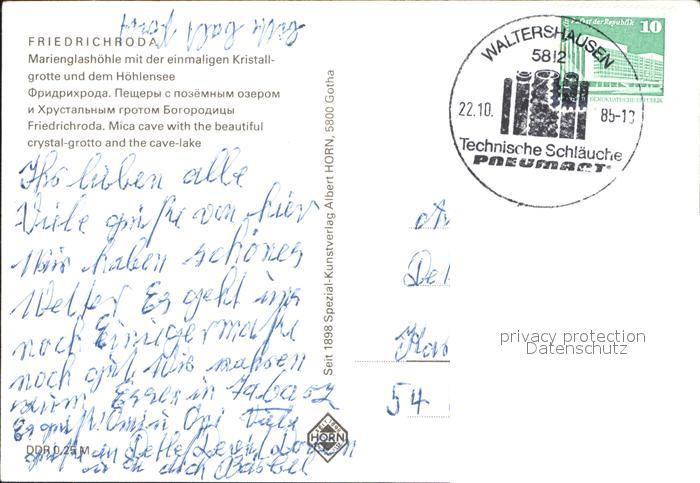 FRIEDRICHRODA
Marienglashöhle mit der einmaligen Kristall-
grotte und dem Höhlensee
Фридрихрода. Пещеры с поэёмным озером
и Хрустальным гротом Богородицы
Friedrichroda. Mica cave with the beautiful
crystal-grotto and the cave-lake
Ihr lieben alle
Viele grüße von hier
Wir haben schönes
Wetter Es geht uns
noch Einigermaße
noch gut Wir waren
zum Essen in Tabarz
Omi Opi
DDR 0,25 M
Seit 1898 Spezial-Kunstverlag Albert HORN, 5800 Gotha
HORN
WALTERSHAUSEN
5812
22.10.
85-13
Technische Schläuche
PNEUMANT
10
Palast der Republik
De
54
privacy protection
Datenschutz